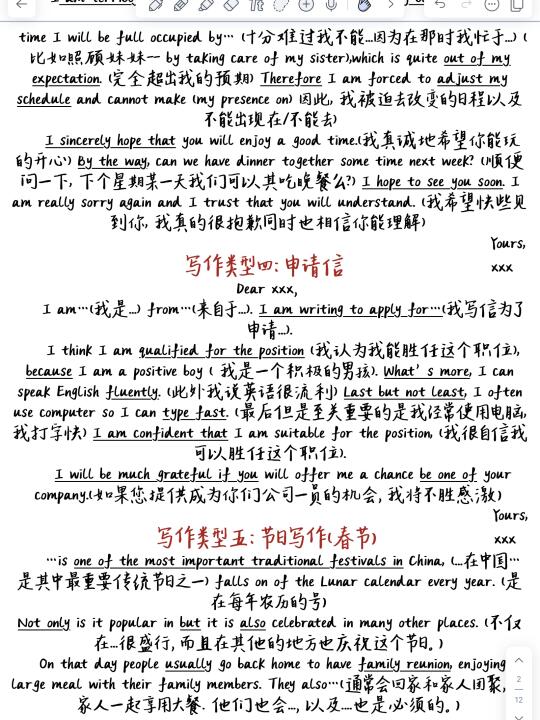 time I will be full occupied by… (十分难过我不能…因为在那时我忙于…) (
比如照顾妹妹一 by taking care of my sister),which is quite out of my
expectation. (完全超出我的预期) Therefore I am forced to adjust my
schedule and cannot make (my presence on) 因此, 我被迫去改变的日程以及
不能出现在/不能去)
I sincerely hope that you will enjoy a good time.(我真诚地希望你能玩
的开心) By the way, can we have dinner together some time next week? (顺便
问一下, 下个星期某一天我们可以共吃晚餐么?) I hope to see you soon. I
am really sorry again and I trust that you will understand. (我希望快些见
到你, 我真的很抱歉同时也相信你能理解)
Yours,
写作类型四: 申请信
xxx
Dear xxx,
I am…(我是…) from…(来自于…). I am writing to apply for…(我写信为了
申请…).
I think I am qualified for the position (我认为我能胜任这个职位),
because I am a positive boy ( 我是一个积极的男孩). What's more, I can
speak English fluently. (此外我说英语很流利) Last but not least, I often
use computer so I can type fast. (最后但是至关重要的是我经常使用电脑,
我打字快) I am confident that I am suitable for the position, (我很自信我
可以胜任这个职位).
I will be much grateful if you will offer me a chance be one of your
company.(如果您提供成为你们公司一员的机会, 我将不胜感激)
Yours,
写作类型五: 节日写作(春节)
xxx
…is one of the most important traditional festivals in China, (…在中国…
是其中最重要传统节日之一) falls on of the Lunar calendar every year. (是
在每年农历的号)
Not only is it popular in but it is also celebrated in many other places. (不仅
在…很盛行, 而且在其他的地方也庆祝这个节日。)
On that day people usually go back home to have family reunion, enjoying
large meal with their family members. They also…(通常会回家和家人团聚,
家人一起享用大餐. 他们也会…, 以及…也是必须的。)
2
12